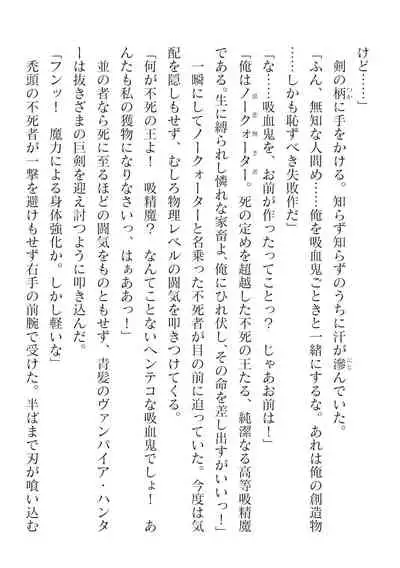 けど……」
剣の柄に手をかける。知らず知らずのうちに汗が滲んでいた。
「ふん、無知な人間め……俺を吸血鬼ごときと一緒にするな。あれは俺の創造物
……しかも恥ずべき失敗作だ」
「な……吸血鬼を、お前が作ったってことっ？　じゃあお前は！」
「俺はノークォーター。死の定めを超越した不死の王たる、純潔なる高等吸精魔
である。生に縛られし憐れな家畜よ、俺にひれ伏し、その命を差し出すがいいっ！」
一瞬にしてノークォーターと名乗った不死者が目の前に迫っていた。今度は気
配を隠しもせず、むしろ物理レベルの闘気を叩きつけてくる。
「何が不死の王よ！　吸精魔？　なんてことないヘンテコな吸血鬼でしょ！　あ
んたも私の獲物になりなさいっ、はぁああっ！」
並の者なら死に至るほどの闘気をものともせず、青髪のヴァンパイア・ハンタ
ーは抜きざまの巨剣を迎え討つように叩き込んだ。
「フンッ！　魔力による身体強化か。しかし軽いな」
禿頭の不死者が一撃を避けもせず右手の前腕で受けた。半ばまで刃が喰い込む